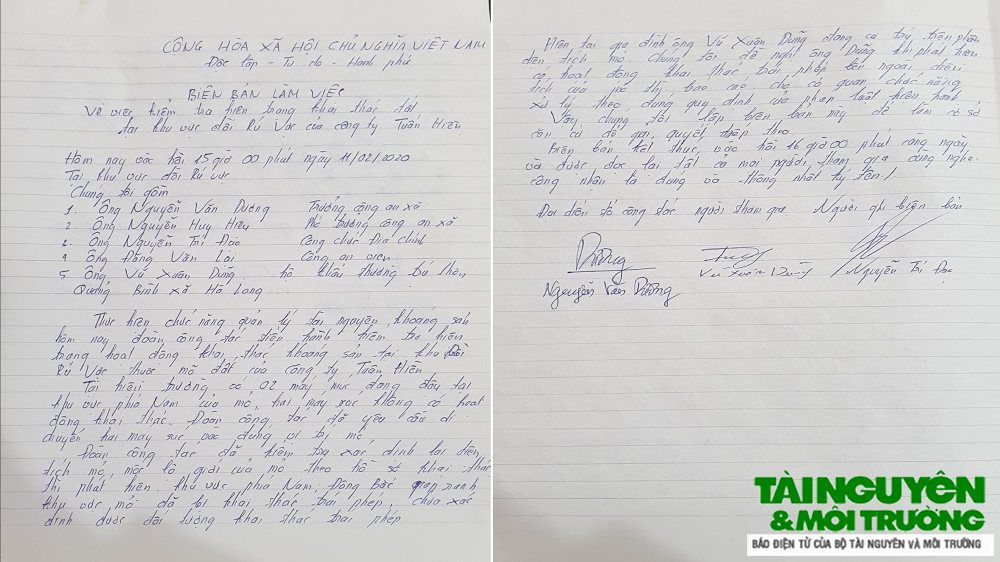 CỘNG HÒA XÃ HỘI CHỦ NGHĨA VIỆT NAM
Độc lập - Tự do - Hạnh phúc
BIÊN BẢN LÀM VIỆC
Về việc kiểm tra hiện trạng khai thác đất
tại khu vực đồi Rú Vức của công ty Tuấn Hiền
Hôm nay vào hồi 15 giờ 00 phút ngày 11/02/2020
Tại khu vực đồi Rú Vức
Chúng tôi gồm
1. Ông Nguyễn Văn Dương Trưởng công an xã
2. Ông Nguyễn Huy Hiệu Phó trưởng công an xã
Ông Nguyễn Trí Đạo Công chức Địa chính
4. Ông Đồng Văn Lại Công an viên
5. Ông Vũ Xuân Dũng hộ khẩu thường trú thôn
Quảng Bình xã Hà Long
Thực hiện chức năng quản lý tài nguyên, khoáng sản
hôm nay đoàn công tác tiến hành kiểm tra hiện
trạng hoạt động khai thác khoáng sản tại khu đồi
Rú Vức thuộc mỏ đất của công ty Tuấn Hiền
Tại hiện trường có 02 máy múc đang đậu tại
khu vực phía Nam của mỏ, hai máy xúc không có hoạt
động khai thác. Đoàn công tác đã yêu cầu di
chuyển hai máy xúc vào đúng vị trí mỏ
Đoàn công tác đã kiểm tra xác định lại diện
tích mỏ, mốc lộ giới của mỏ theo hồ sơ khai thác
thì phát hiện khu vực phía Nam, Đông Bắc giáp ranh
khu vực mỏ đã bị khai thác trái phép, chưa xác
định được đối tượng khai thác trái phép
Hiện tại gia đình ông Vũ Xuân Dũng đang cư trú trên phần
diện tích mỏ. Chúng tôi đề nghị ông Dũng khi phát hiện
có hoạt động khai thác trái phép bên ngoài diện
tích của mỏ thì báo cáo cho cơ quan chức năng
xử lý theo đúng quy định của pháp luật hiện hành
Vậy, chúng tôi lập biên bản này để làm cơ sở
căn cứ để giải quyết tiếp theo.
Biên bản kết thúc vào hồi 16 giờ 00 phút cùng ngày
và được đọc lại tất cả mọi người tham gia cùng nghe
công nhận là đúng và thống nhất ký tên./
Đại diện tổ công tác người tham gia Người ghi biên bản
Dương
Nguyễn Văn Dương Vũ Xuân Dũng Nguyễn Trí Đạo
TÀI NGUYÊN
& MÔI TRƯỜNG
BÁO ĐIỆN TỬ CỦA BỘ TÀI NGUYÊN VÀ MÔI TRƯỜNG